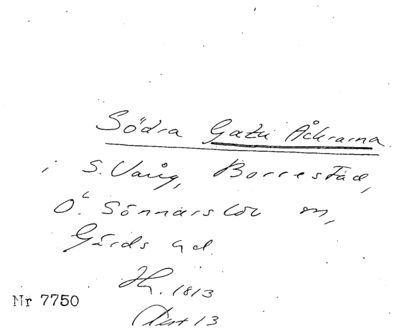 Södra Gatu Åkrarna
i S. Vång, Borrestad,
Ö. Sönnarslöv sn,
Gärds hd.
Hy. 1813
Nr 7750
13